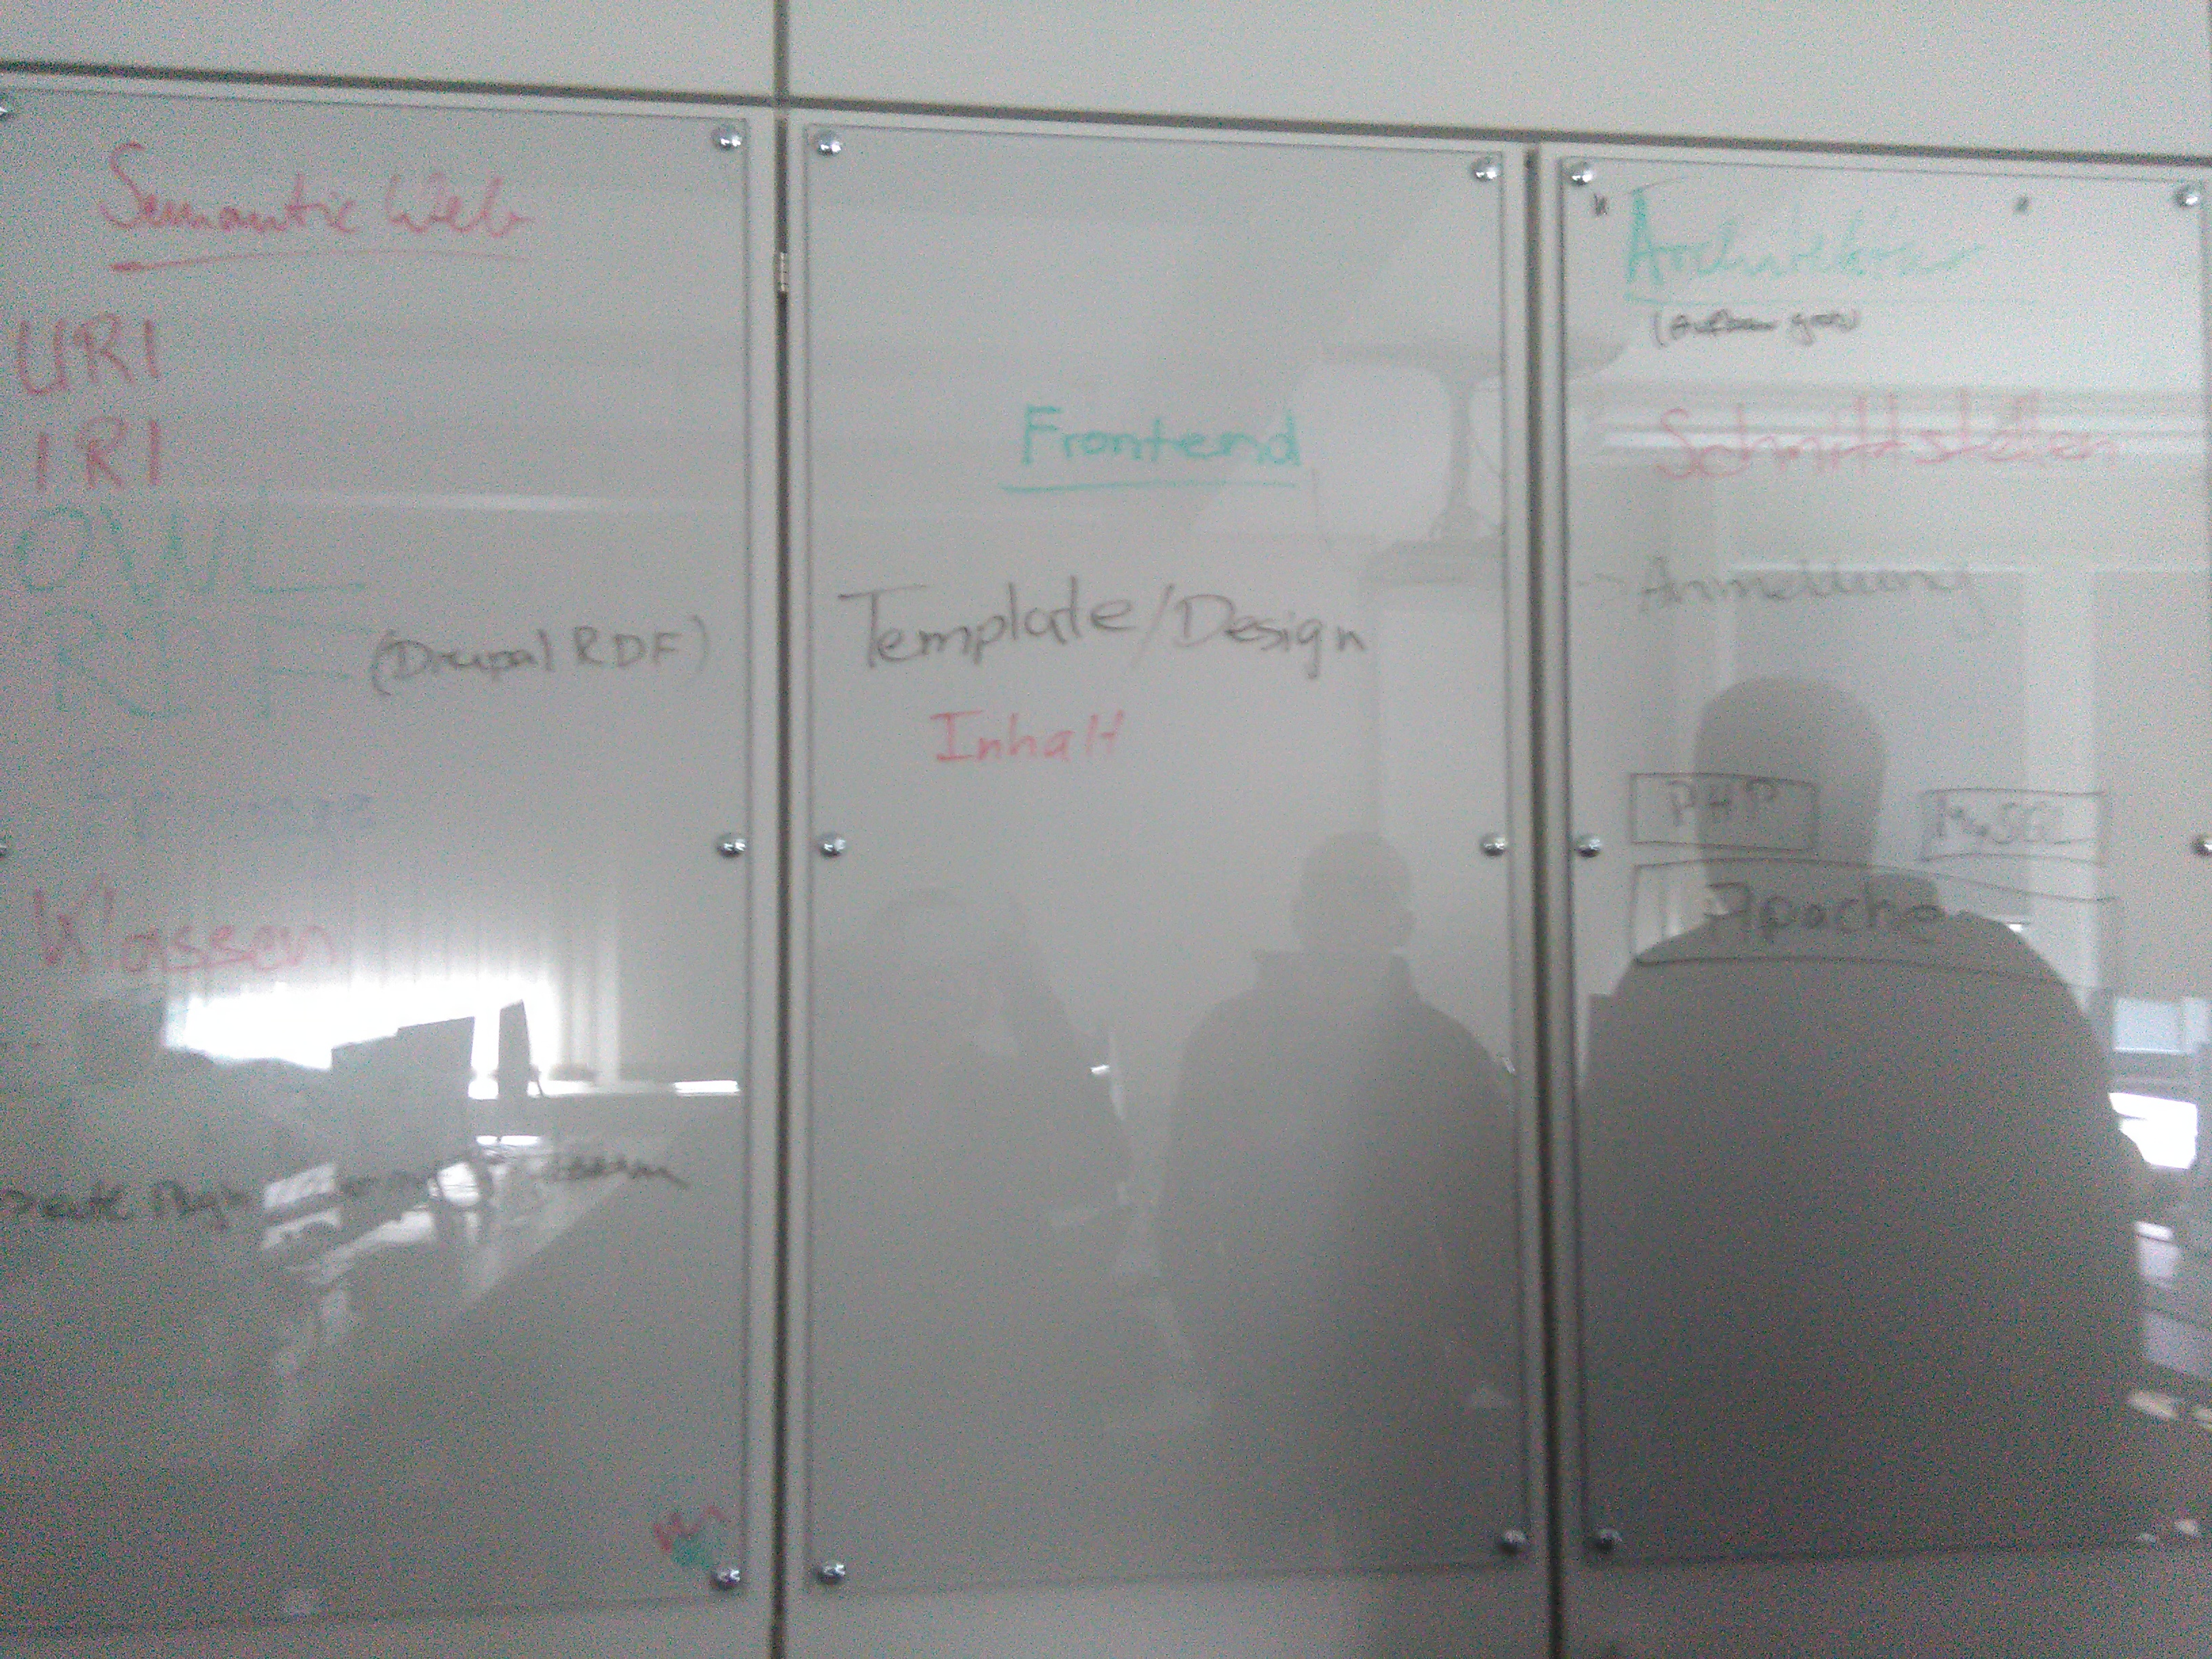 Semantic Web
URI
IRI
OWL
RDF (Drupal RDF)
Klassen
Frontend
Template/Design
Inhalt
Architektur
(Aufbau grob)
Schnittstellen
-> Anmeldung
PHP MySQL
Apache